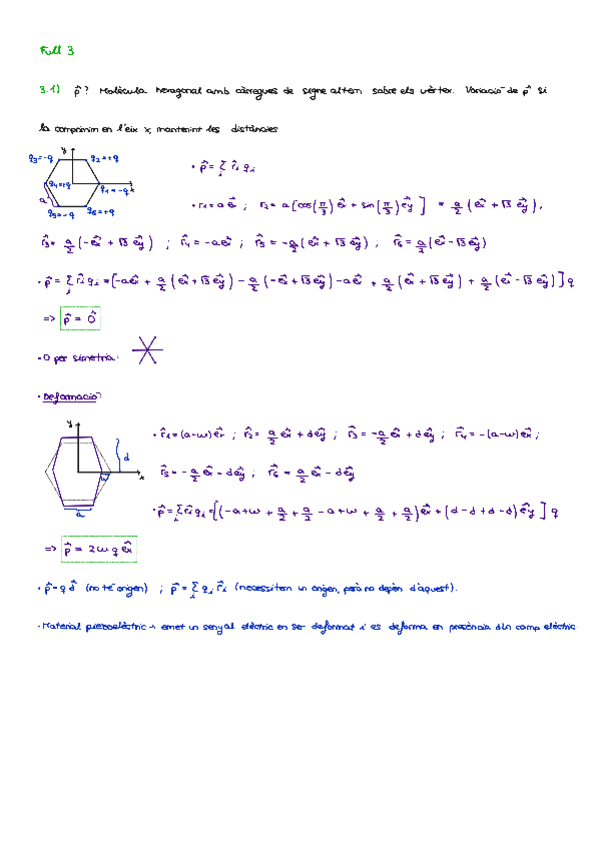 Full 3
3.1) p⃗? Molècula hexagonal amb càrregues de signe altern sobre els vèrtex. Variació de p⃗ si
la comprimim en l'eix x, mantenint les distàncies
y
q3=-q q2=+q
q4=+q q1=-q x
a
q5=-q q6=+q
• p⃗ = Σi r⃗i qi
• r⃗1 = a e⃗x ; r⃗2 = a [cos(π/3) e⃗x + sin(π/3) e⃗y] = a/2 (e⃗x + √3 e⃗y),
r⃗3 = a/2 (-e⃗x + √3 e⃗y) ; r⃗4 = -a e⃗x ; r⃗5 = -a/2 (e⃗x + √3 e⃗y) ; r⃗6 = a/2 (e⃗x - √3 e⃗y)
• p⃗ = Σi r⃗i qi = [-a e⃗x + a/2 (e⃗x + √3 e⃗y) - a/2 (-e⃗x + √3 e⃗y) - a e⃗x + a/2 (e⃗x + √3 e⃗y) + a/2 (e⃗x - √3 e⃗y)] q
=> p⃗ = 0⃗
• 0 per simetria:
• Deformació?
y
d
w
x
a
• r⃗1 = (a-w) e⃗r ; r⃗2 = a/2 e⃗x + d e⃗y ; r⃗3 = -a/2 e⃗x + d e⃗y ; r⃗4 = -(a-w) e⃗x ;
r⃗5 = -a/2 e⃗x - d e⃗y ; r⃗6 = a/2 e⃗x - d e⃗y
• p⃗ = Σi r⃗i qi = [(-a+w + a/2 + a/2 - a+w + a/2 + a/2) e⃗x + (d-d+d-d) e⃗y] q
=> p⃗ = 2wq e⃗x
• p⃗ = q d⃗ (no té origen) ; p⃗ = Σi qi r⃗i (necessitem un origen, però no depèn d'aquest).
• Material piezoelèctric → emet un senyal elèctric en ser deformat i es deforma en presència d'un camp elèctric